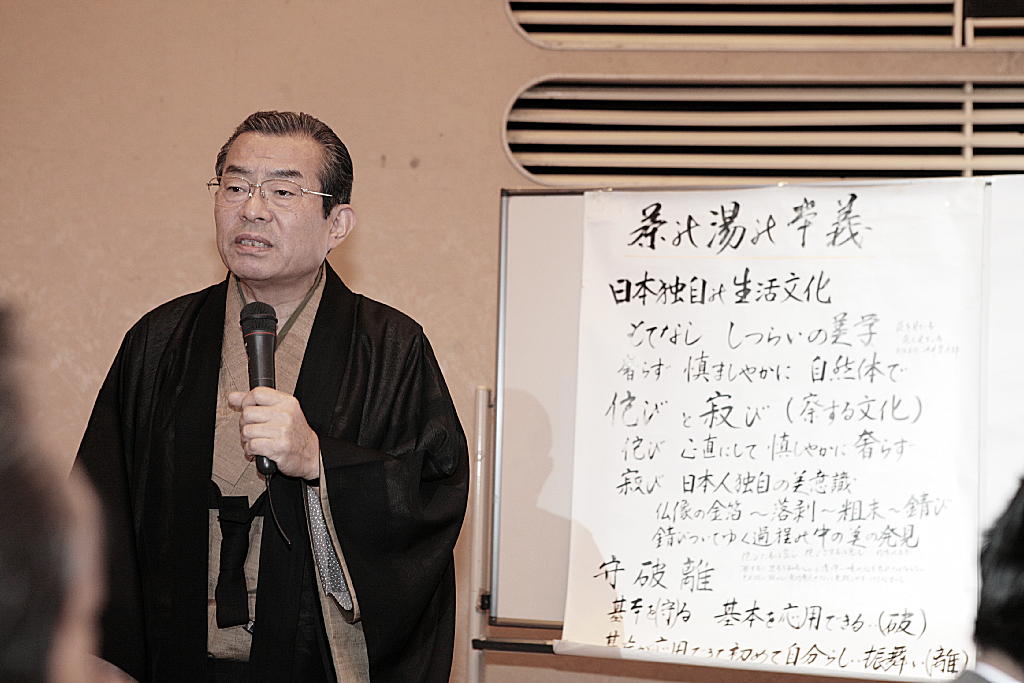 茶の湯の本義
日本独自の生活文化
もてなし しつらいの美学
奢らず 慎ましやかに 自然体で
侘び と 寂び (察する文化)
侘び 心直にして 慎しやかに 奢らず
寂び 日本人独自の美意識
仏像の金箔〜落剥〜粗末〜錆び
錆びついてゆく過程の中の美の発見
守 破 離
基本を守る 基本を応用できる‥(破)
基本が応用できて初めて自分らしい振舞い(離)